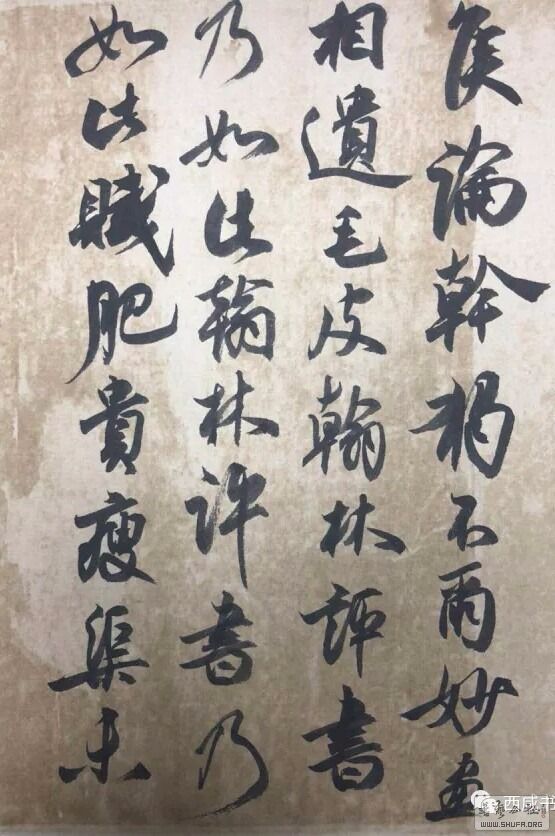 侯論幹獨不爾妙畫
相遺毛皮翰林評書
乃如此翰林評書乃
如此賤肥貴瘦渠未
西咸书
WWW.SHUFA.ORG